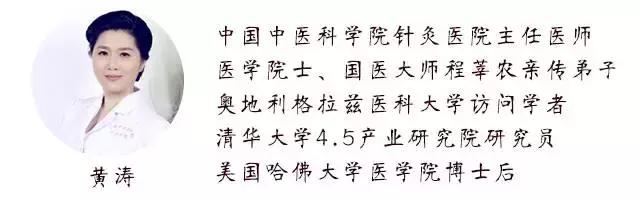 中国中医科学院针灸医院主任医师
医学院士、国医大师程莘农亲传弟子
奥地利格拉兹医科大学访问学者
清华大学4.5产业研究院研究员
美国哈佛大学医学院博士后
黄涛